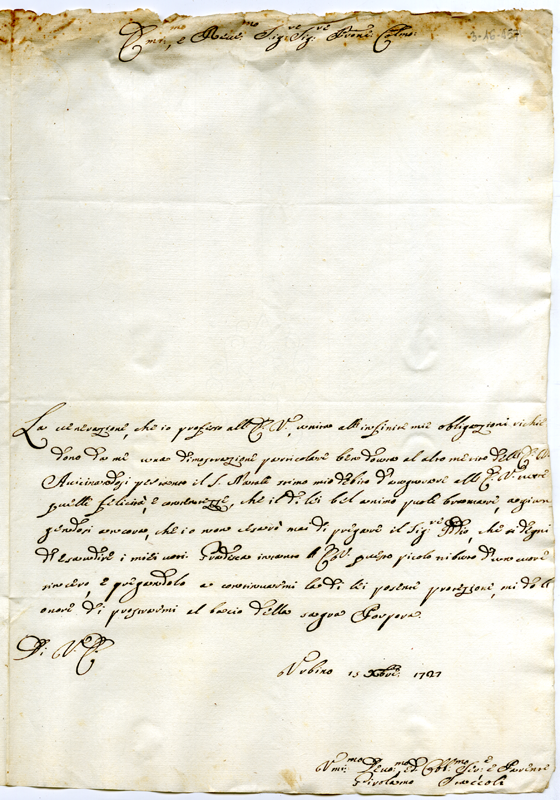 Em.mo, e Reu.mo Sig.re Sig.re Prone Colmo
La uenerazione, che io professo all'E. V., unita all'infinite mie obligazioni richie
dono da me una dimostrazione particolare ben douuta al alto merito dell' E. V.
Auicinandosi pertanto il S. Natale stimo mio debito d'augurare all' E. V. tutte
quelle felicità, e contentezze, che il di lei bel animo puole bramare, assicu
gendosi ancora, che io non cessarò mai di pregare il Sig.re Iddio, che si degni
di esaudire i miei uoti. Gradisca intanto l' E. V. questo picolo tributo d'un cuore
sincero, e pregandola a continuarmi la di lei potente protezzione, mi dò l'
onore di prostrarmi al bacio della sagra Porpora.
Di V. E.
Vrbino 15 Xbre 1727
Vmi.mo Deuo.mo et Obl.mo Ser.e e Parente
Girolamo Staccoli